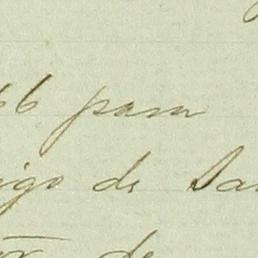 66 para
igo de Sa
de